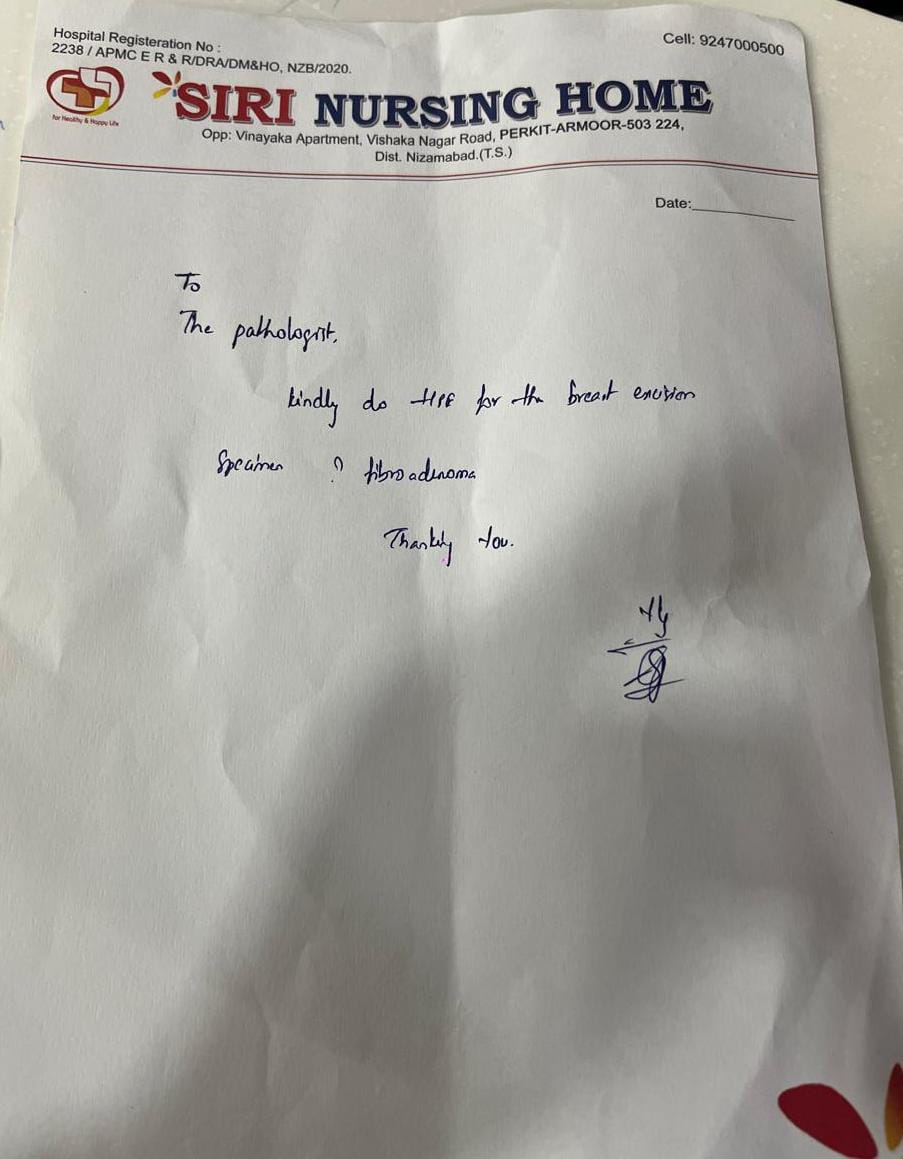 Hospital Registeration No :
2238 / APMC E R & R/DRA/DM&HO, NZB/2020.
Cell: 9247000500
for Healthy & Happy Life
SIRI NURSING HOME
Opp: Vinayaka Apartment, Vishaka Nagar Road, PERKIT-ARMOOR-503 224,
Dist. Nizamabad.(T.S.)
Date:
To
The pathologist,
kindly do HPE for the breast excision
Specimen ? fibroadenoma
Thanking You.